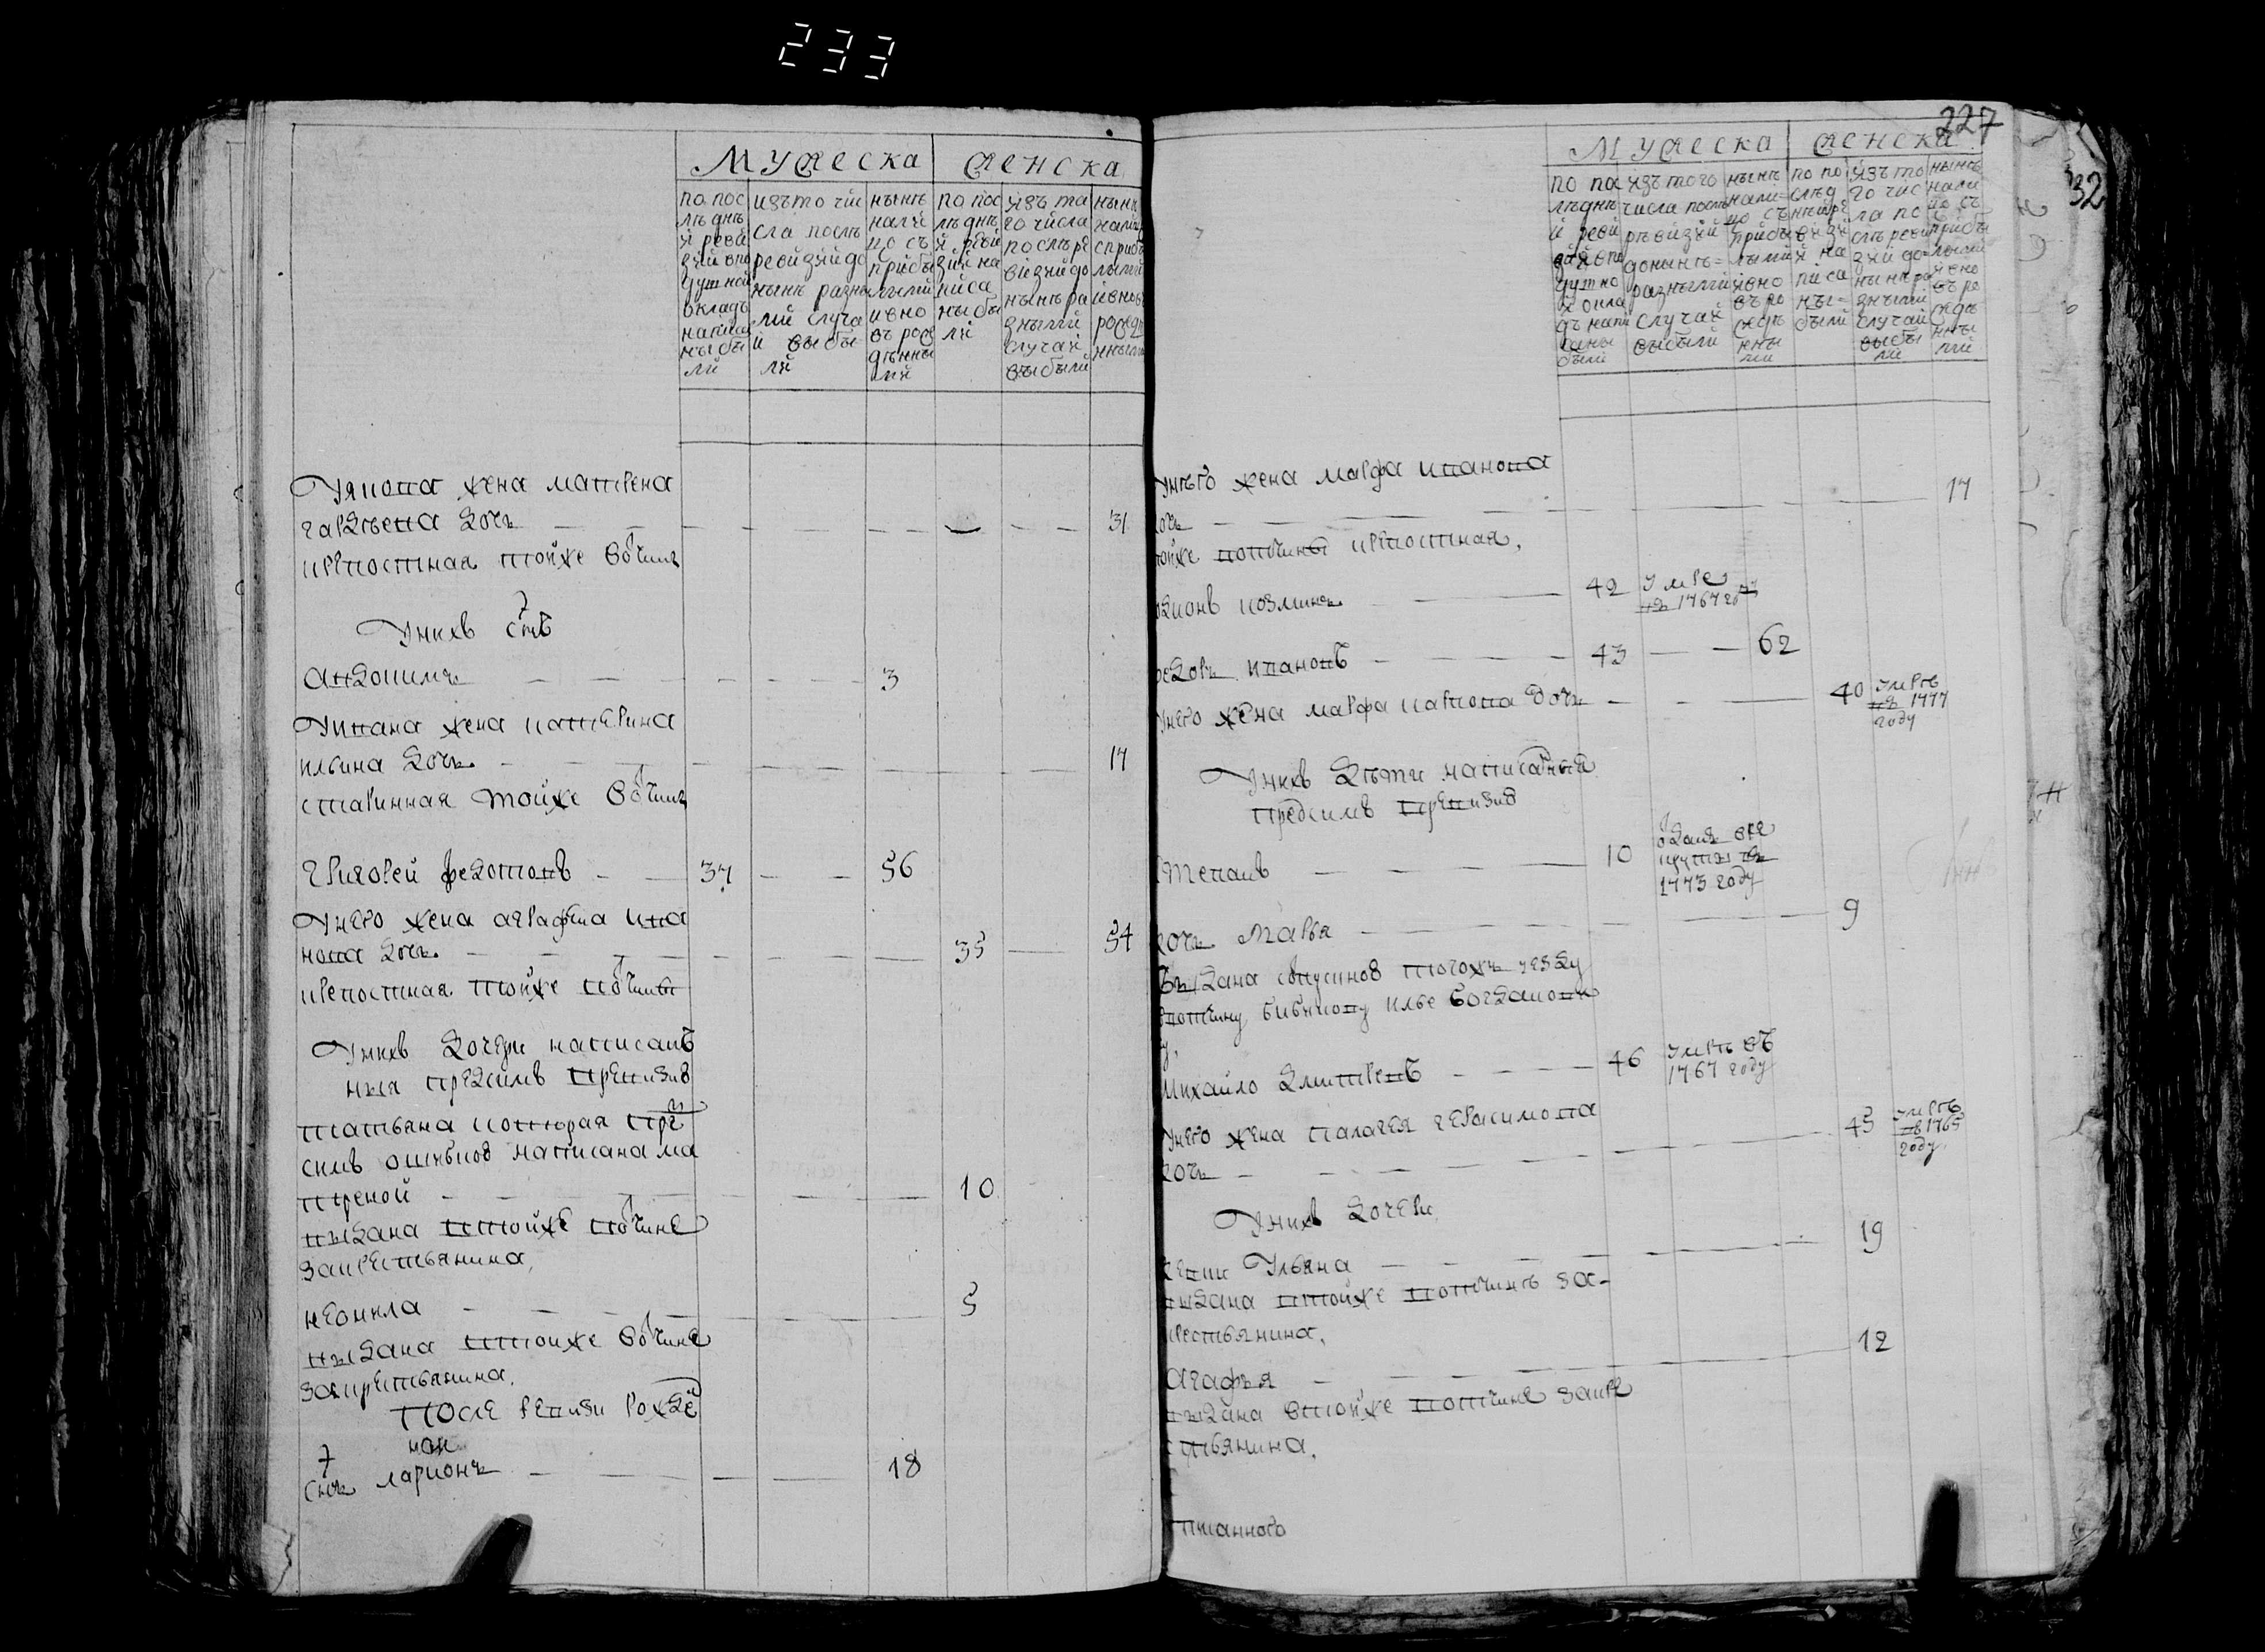 233
Мужеска женска
по пос
лѣднѣ
й реви
зіи впо
душной
окладъ
написа
ны бы
ли
изъ то чи
сла послѣ
ревизіи до
нынѣ разны
ми случа
и выбы
ли
нынѣ
налі
цо съ
прибы
лыми
и вно
въ рож
денны
ми
по пос
лѣднѣ
й реви
зіи на
писа
ны бы
ли
изъ та
го числа
послѣ ре
визіи до
нынѣ ра
зными
случаи
выбыли
нынѣ
налиц
с прибы
лыми
и вновь
рожде
нными
Уякова жена матрена
гаврѣева дочь 31
крепостная тойже вотчинѣ
Уних снъ
Андоким 3
Уивана жена катерина
ильина дочь 17
старинная тойже вотчинѣ
григорей федотовъ 37 56
Унего жена аграфена ива
нова дочь 35 54
крепостная тойже вотчины
Унихъ дочери написанъ
ныя пред симъ вревизию
татьяна которая пре
симъ ошибкою написана ма
треной 10
выдана втойже вотчине
закрестьянина,
неонила 5
выдана втойже вотчине
закрестьянина,
после ревизи рожде
ной
снъ ларионъ 18
227
32
Мужеска женска
по по
лѣднѣ
й реви
зіи впо
душно
й окла
дъ напи
саны
были
изъ того
числа послѣ
ревизіи
до нынѣ
разными
случаи
выбыли
нынѣ
нали
цо съ
прибы
лыми
и вно
въ ро
жде
нны
ми
по по
слѣд
нѣй ре
визі
и на
писа
ны
были
изъ то
го чис
ла по
слѣ реви
зіи до
нынѣ ра
зными
случаи
выбы
ли
нынѣ
нали
цо съ
прибы
лыми
и вно
въ ро
жде
нны
ми
унѣго жена марфа иванова
дочь 17
тойже вотчины крепостная,
козминъ 42 умре
въ 1767 го
федоръ ивановъ 43 62
унего жена марфа карпова дочь 40 умрѣ
въ 1777
году
Унихъ дѣти написаныя
предсимъ вревизию
степанъ 10 отданъ вре
круты въ
1773 году
дочь Марья 9
выдана сопускною тогожъ уезду
вотчину бибикову илье богданови
у,
Михайло дмитревъ 46 умрѣ въ
1767 году
унего жена палагея герасимова
дочь 45 умрѣ
въ 1765
году
Унихъ дочери
девки Ульяна 19
выдана втойже вотчинѣ за-
крестьянина,
агафья 12
выдана втойже вотчине закре
стьянина,